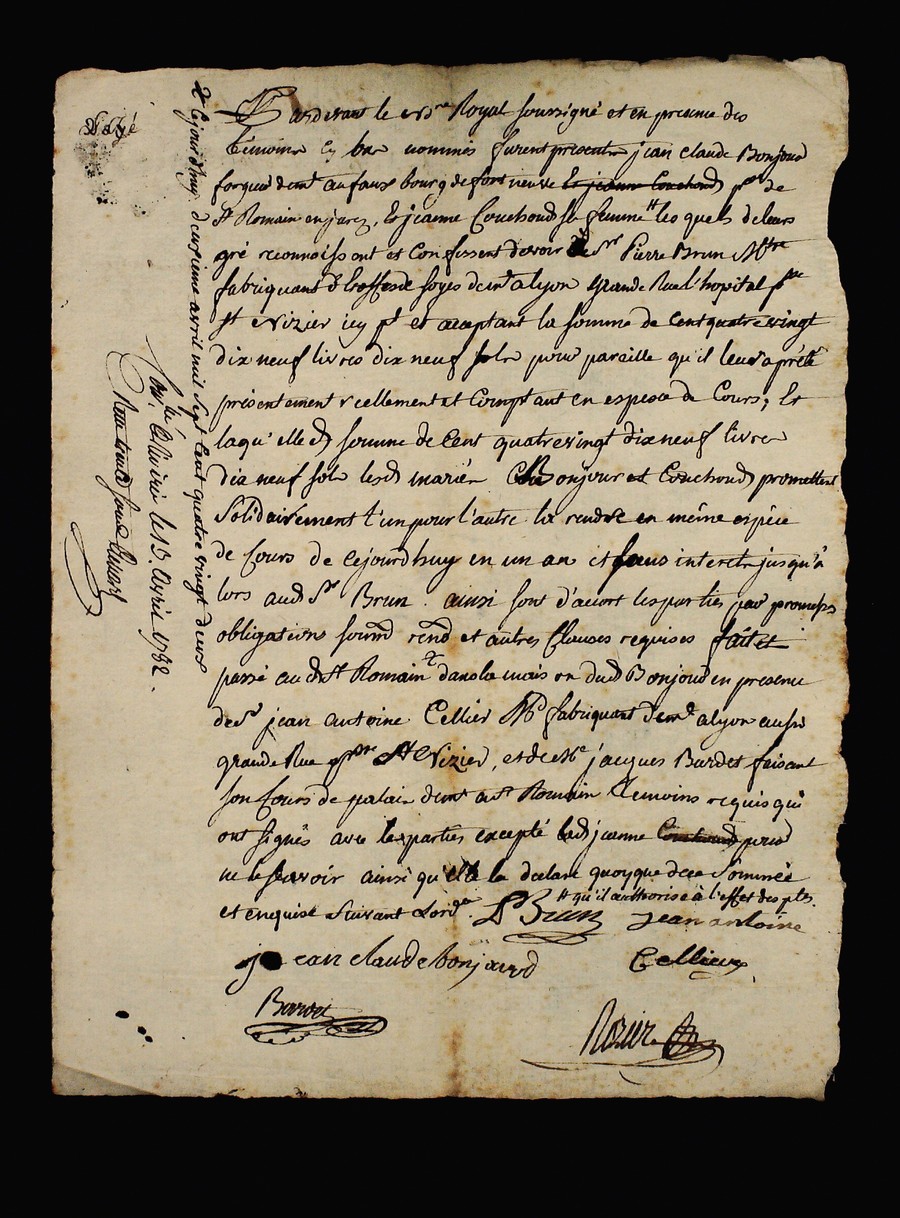 Pardevant le nore Royal soussigné et en presence des
témoins cy bas nommés furent presents jean claude Bonjour
forgeur demt au faux bourg de fort neuve et jeanne Couchoud psse de
St Romain en jarez, Et jeanne Couchoud sa femme # les quels de leurs
gré reconnoissent et Confessent devoir à Sr Pierre Brun Mtre
fabriquant d'Etoffes de soyes demt a lyon grande Rue l'hopital psse
St Nizier icy pt et aceptant la somme de Cent quatre vingt
dix neuf livres dix neuf sols pour pareille qu'il leur a prêté
présentement réellement et Comptant en espece de Cours; Et
laqu'elle de somme de Cent quatre vingt dix neuf livres
dix neuf sols lesd mariés Bonjour et Couchoud promettent
Solidairement l'un pour l'autre la rendre en même espèce
de Cours de cejourdhuy en un an et sans interets jusqu'à
lors aud Sr Brun. ainsi sont d'acort les parties par promesses
obligations soumd rend et autres Clauses requises fait et
passé aud St Romain dans la maison dud Bonjour en presence
de Sr jean antoine Cellier Md fabriquant demt a lyon aussi
grande Rue psse St Nizier, et de Me jacques Bardet faisant
son Cours de palais demt a St Romain témoins requis qui
ont signés avec les parties excepté lad jeanne Couchoud pour
ne le savoir ainsi qu'elle le declare quoyque de ce Sommée
et enquise Suivant Lordce
# qu'il authorise à l'effet des ptes.
P Brun jean antoine
jean claude bonjourd Cellieur
Bardet
Rozier
cejourd'huy douzieme avril mil sept Cent quatre vingt deux
Conlé à St Livier le 13. avril 1782.